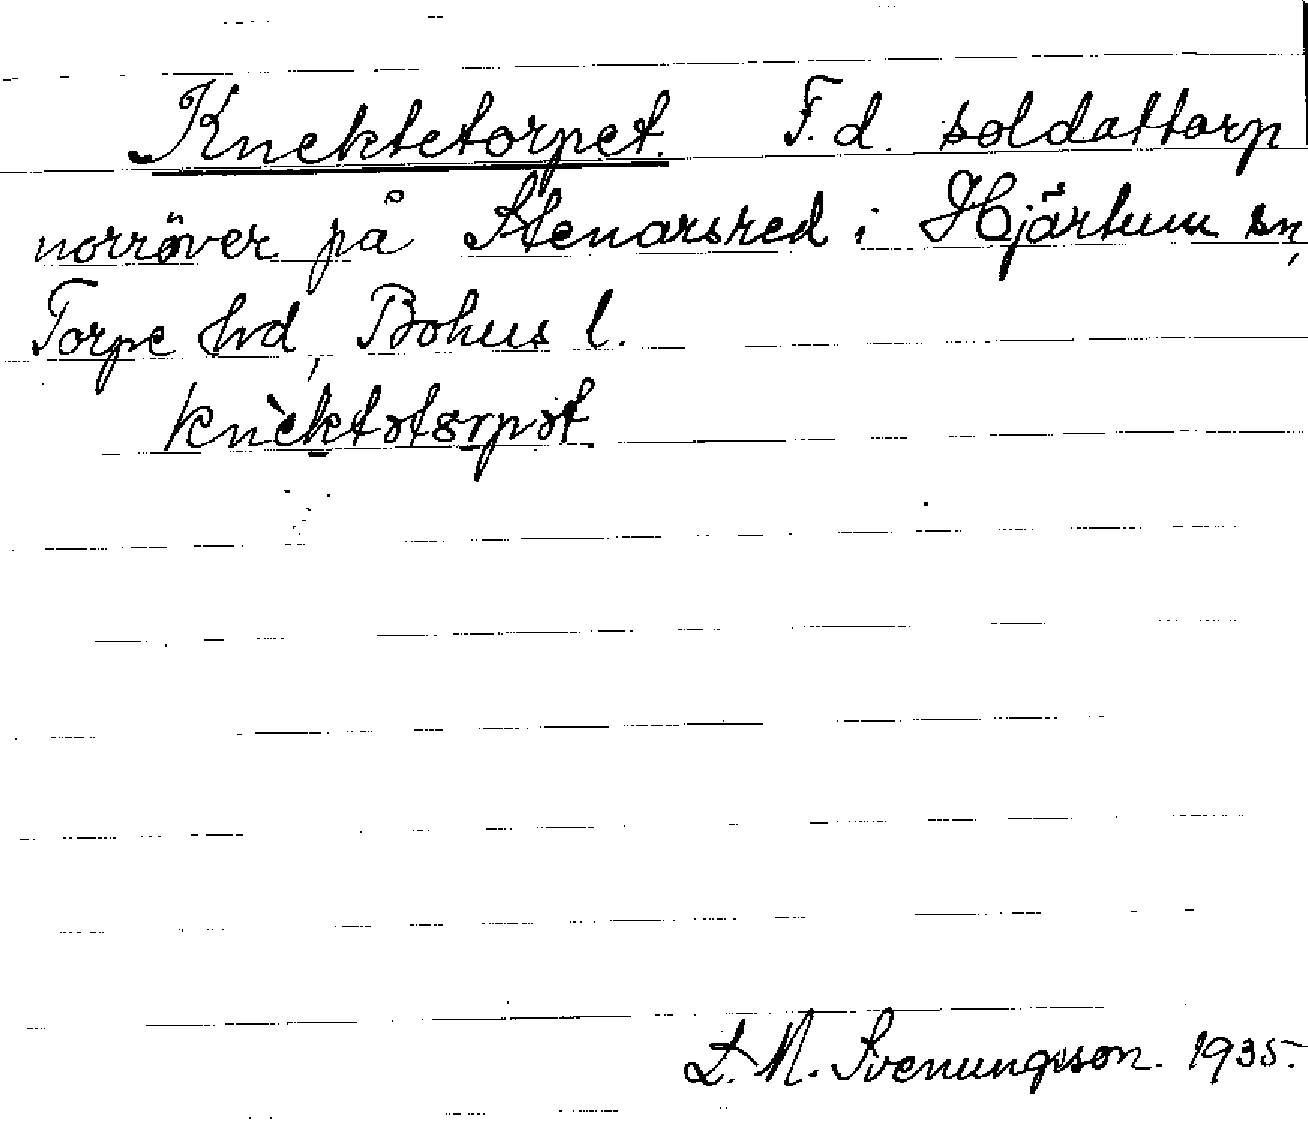 Knektetorpet. F. d. soldattorp
norröver på Stenarsred i Hjärtum sn,
Torpe hd, Bohus l.
knèktətɔrpət
L. M. Svenungsson. 1935.